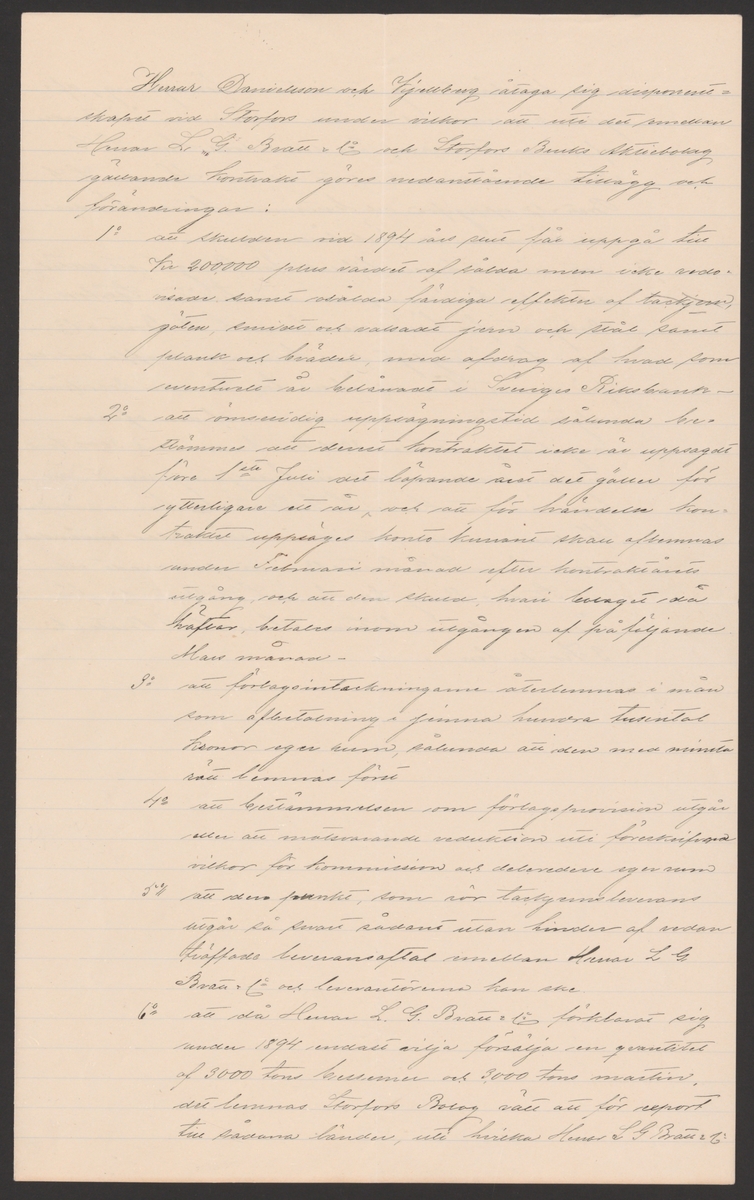 Herrar Danielsson och Kjellberg åtaga sig disponent=
skapet vid Storfors under vilkor att uti det emellan
Herrar L. G. Bratt & Co och Storfors Bruks Aktiebolag
gällande kontrakt göres nedanstående tillägg och
förändringar:
1o att skulden vid 1894 års slut får uppgå till
Kr 200,000 plus värdet af sålda men icke redo-
visade samt osålda färdiga effekter af tackjern,
göten, smidt och valsadt jern och stål samt
plank och bräder, med afdrag af hvad som
eventuelt är belånadt i Sveriges Riksbank –
2o att ömsesidig uppsägningstid sålunda be-
stämmes att derest kontraktet icke är uppsagdt
före 1sta Juli det löpande året det gäller för
ytterligare ett år, och att för händelse kon-
traktet uppsäges konto kurant skall aflemnas
under Februari månad efter kontraktårets
utgång, och att den skuld, hvari bolaget då
häftar, betales inom utgången af påföljande
Mars månad –
3o att förlagsinteckningarne återlemnas i mån
som afbetalning i jemna hundra tusental
kronor eger rum, sålunda att den med minsta
rätt lemnas först
4o att bestämmelsen om förlagsprovision utgår
eller att motsvarande reduktion uti föreskrifna
vilkor för kommission och delcredere eger rum
5o att den punkt, som rör tackjernsleverans
utgår så snart sådant utan hinder af redan
träffade leveransaftal emellan Herrar L G
Bratt & Co och leverantörerna kan ske
6o att då Herrar L. G. Bratt & Co förklarat sig
under 1894 endast vilja försälja en qvantitet
af 3000 tons bessemer och 3,000 tons martin,
det lemnas Storfors Bolag rätt att för export
till sådana länder, uti hvilka Herrar L G Bratt & Co